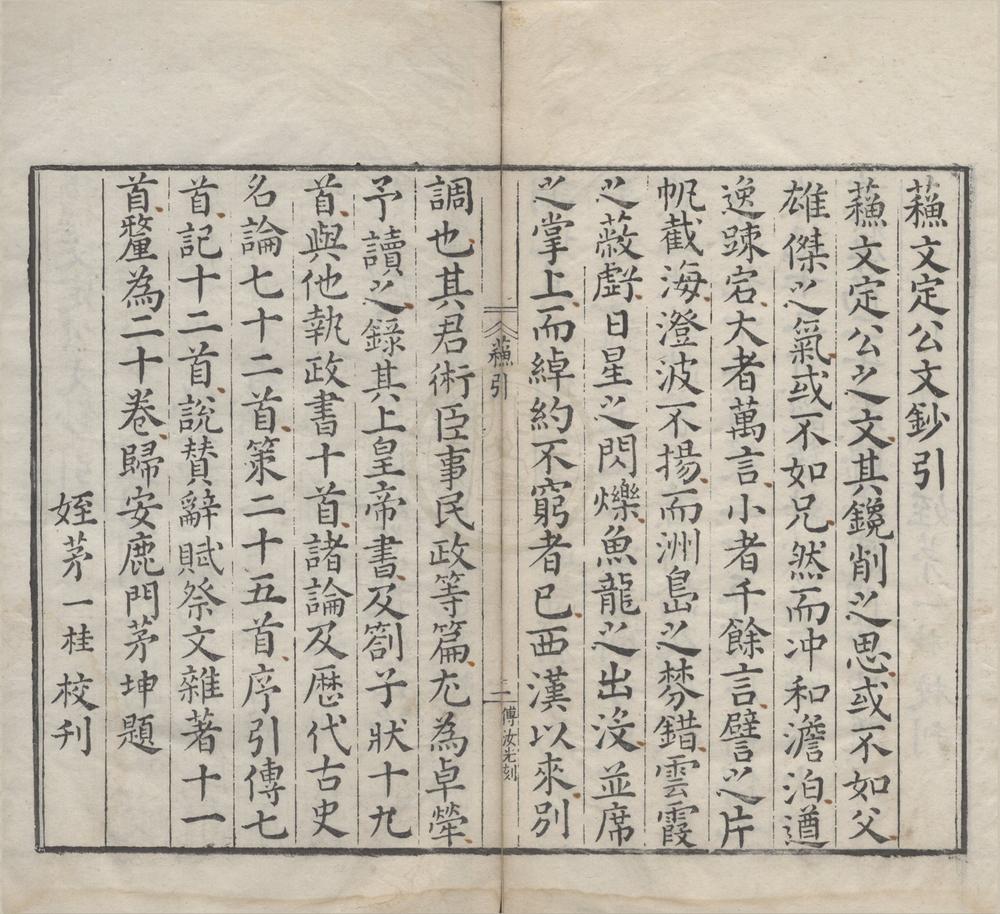 蘓文定公文鈔引
蘓文定公之文其鑱削之思或不如父
雄傑之氣或不如兄然而冲和澹泊遒
逸踈宕大者萬言小者千餘言譬之片
帆截海澄波不揚而洲島之棼錯雲霞
之蔽虧日星之閃爍魚龍之出没並席
之掌上而綽約不窮者已西漢以來别
蘓引
一
傅汝光刻
調也其君術臣事民政等篇尤為卓犖
予讀之錄其上皇帝書及劄子狀十九
首與他執政書十首諸論及歷代古史
名論七十二首策二十五首序引傳七
首記十二首說贊辭賦祭文雜著十一
首釐為二十卷歸安鹿門茅坤題
姪茅一桂校刋